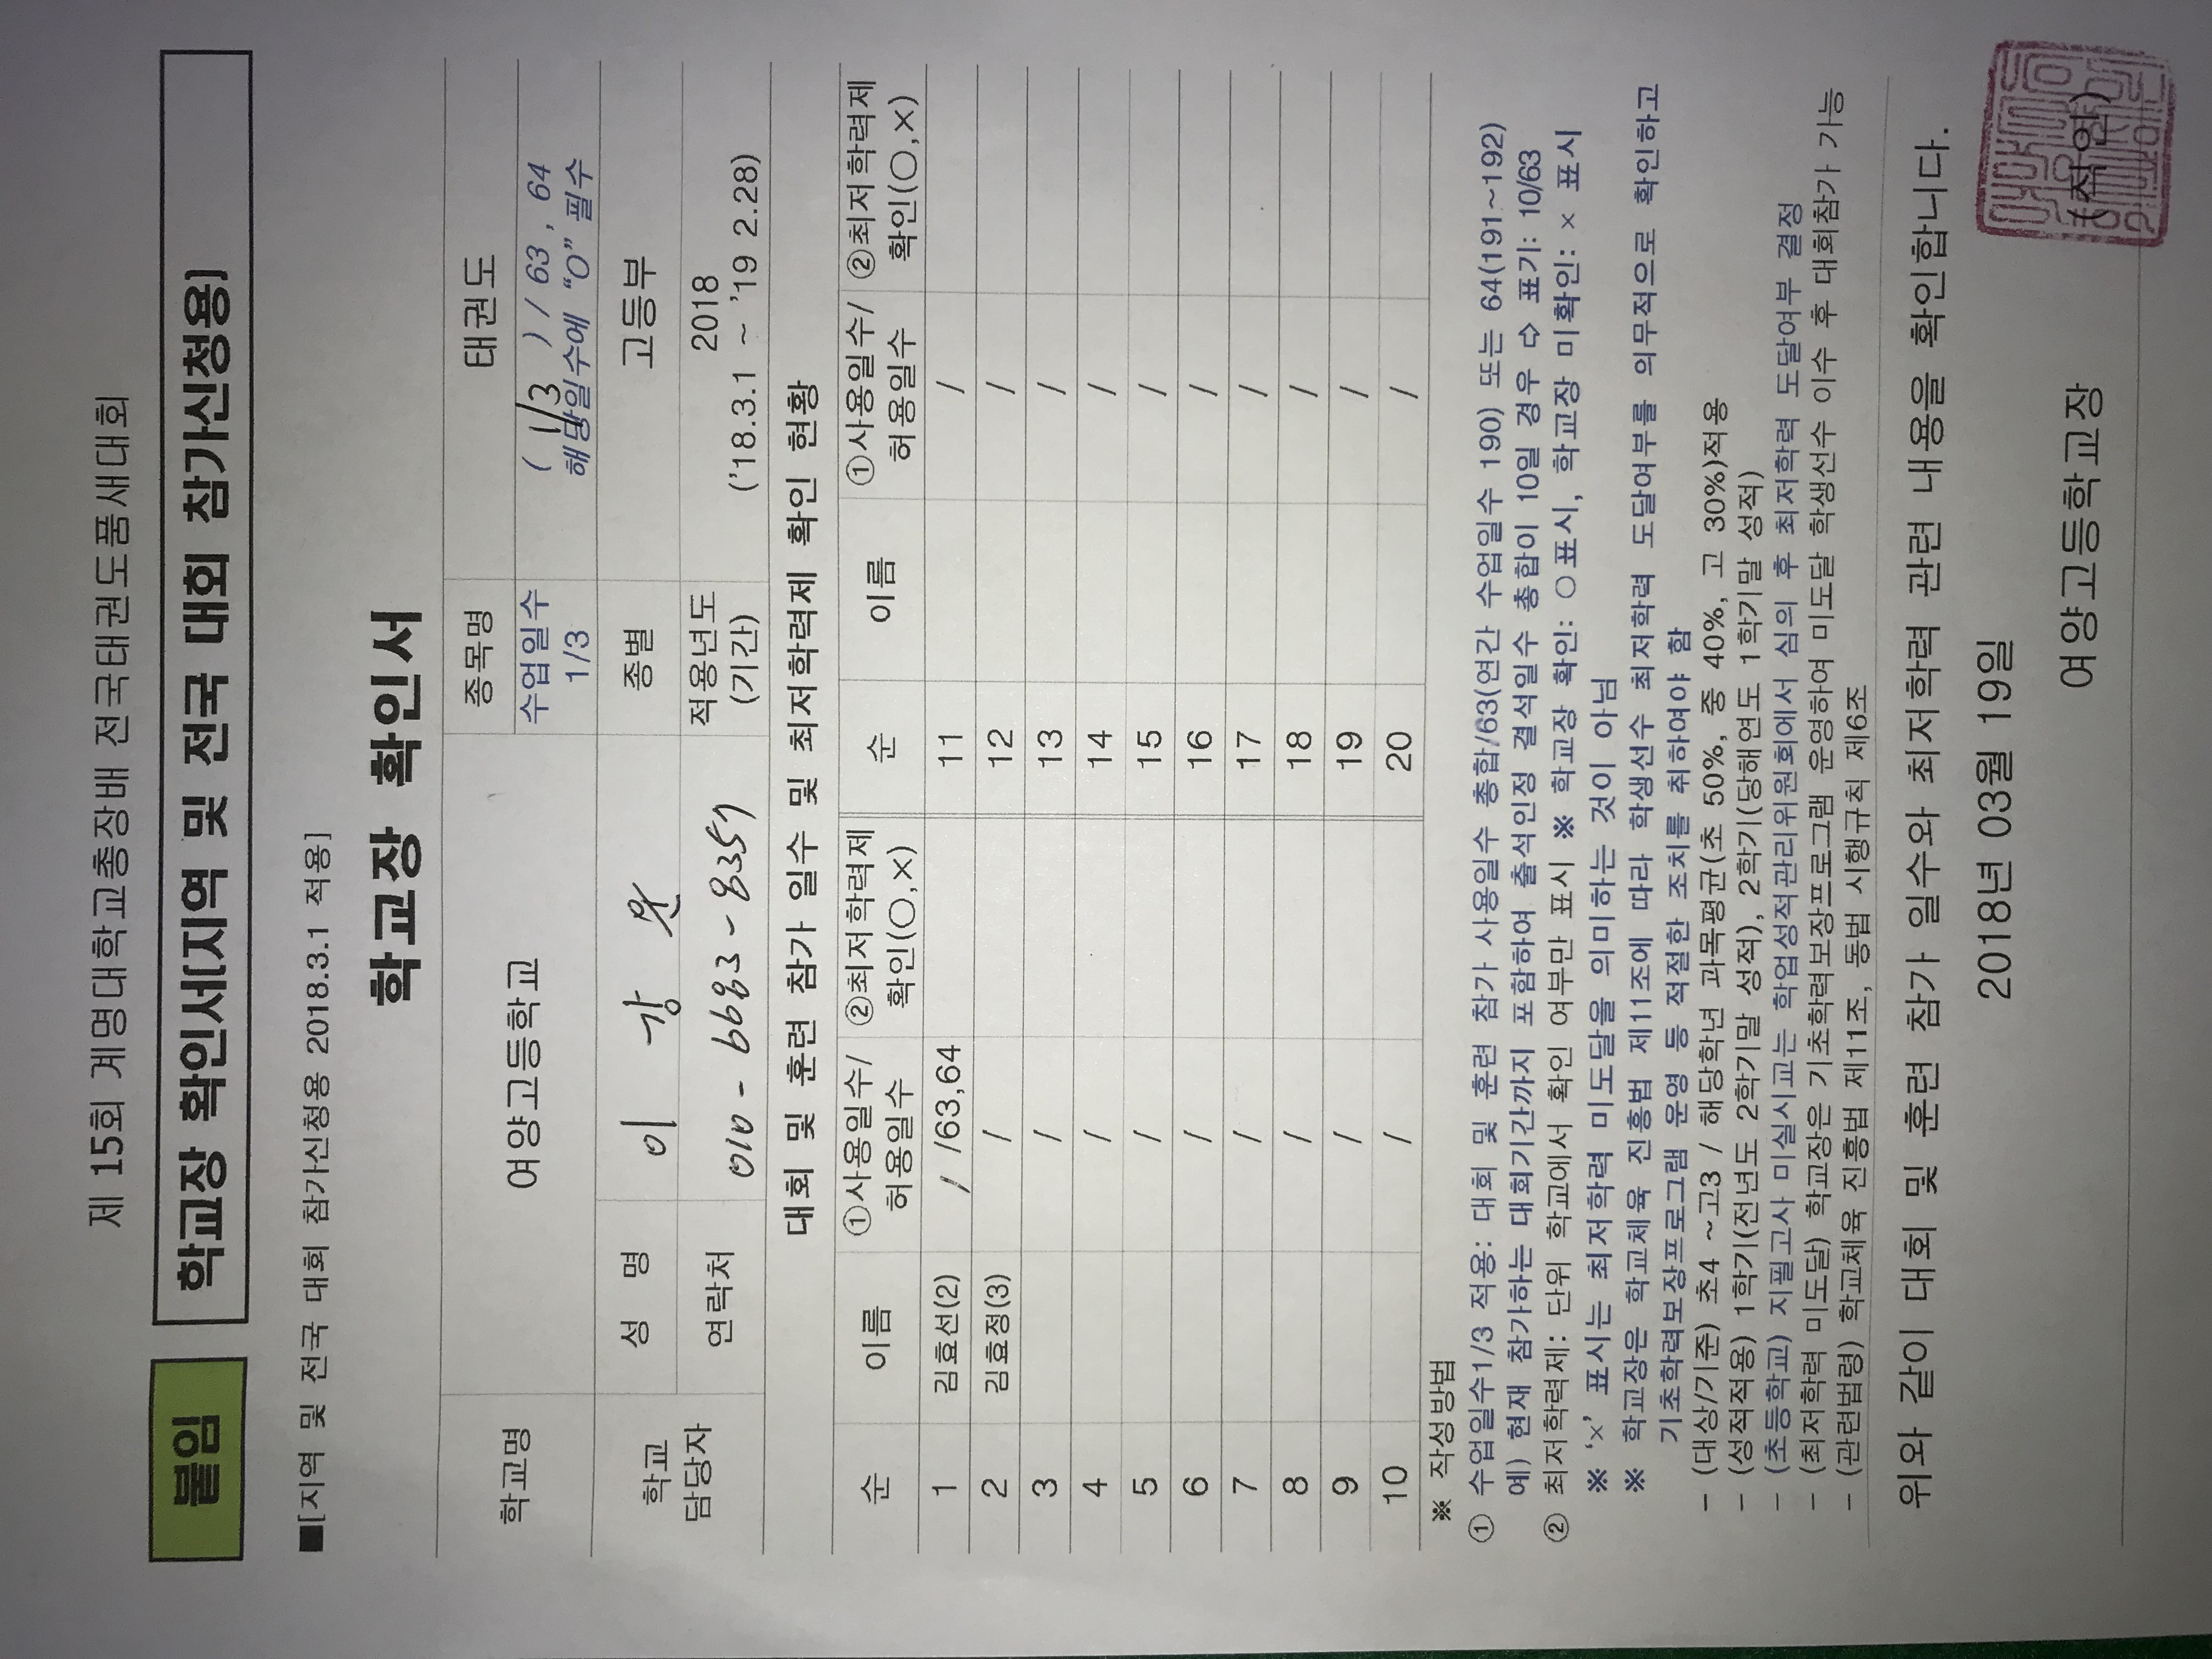 제 15회 계명대학교총장배 전국태권도품새대회
붙임 학교장 확인서[지역 및 전국 대회 참가신청용]
■[지역 및 전국 대회 참가신청용 2018.3.1 적용]
학교장 확인서
학교명 여양고등학교 종목명 태권도
수업일수 1/3 ( 1/3 ) / 63 , 64 해당일수에 “O” 필수
학교 담당자 성 명 이 강 종별 고등부
연락처 010 - 6683 - 8359 적용년도 (기간) 2018 ('18.3.1 ~ '19 2.28)
대회 및 훈련 참가 일수 및 최저학력제 확인 현황
순 이름 ①사용일수/허용일수 ②최저학력제 확인(○,×) 순 이름 ①사용일수/허용일수 ②최저학력제 확인(○,×)
1 김효선(2) / /63,64 11 /
2 김효정(3) / 12 /
3 / 13 /
4 / 14 /
5 / 15 /
6 / 16 /
7 / 17 /
8 / 18 /
9 / 19 /
10 / 20 /
※ 작성방법
① 수업일수1/3 적용: 대회 및 훈련 참가 사용일수 총합/63(연간 수업일수 190) 또는 64(191~192)
예) 현재 참가하는 대회기간까지 포함하여 출석인정 결석일수 총합이 10일 경우 ⇨ 표기: 10/63
② 최저학력제: 단위 학교에서 확인 여부만 표시 ※ 학교장 확인: ○표시, 학교장 미확인: × 표시
※ '×' 표시는 최저학력 미도달을 의미하는 것이 아님
※ 학교장은 학교체육 진흥법 제11조에 따라 학생선수 최저학력 도달여부를 의무적으로 확인하고
기초학력보장프로그램 운영 등 적절한 조치를 취하여야 함
- (대상/기준) 초4 ~고3 / 해당학년 과목평균(초 50%, 중 40%, 고 30%)적용
- (성적적용) 1학기(전년도 2학기말 성적), 2학기(당해연도 1학기말 성적)
- (초등학교) 지필고사 미실시교는 학업성적관리위원회에서 심의 후 최저학력 도달여부 결정
- (최저학력 미도달) 학교장은 기초학력보장프로그램 운영하여 미도달 학생선수 이수 후 대회참가 가능
- (관련법령) 학교체육 진흥법 제11조, 동법 시행규칙 제6조
위와 같이 대회 및 훈련 참가 일수와 최저학력 관련 내용을 확인합니다.
2018년 03월 19일
여양고등학교장 (직인)